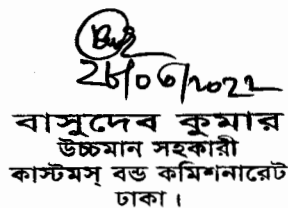 ২৮/০৬/২০২২
বাসুদেব কুমার
উচ্চমান সহকারী
কাস্টমস্ বন্ড কমিশনারেট
ঢাকা।